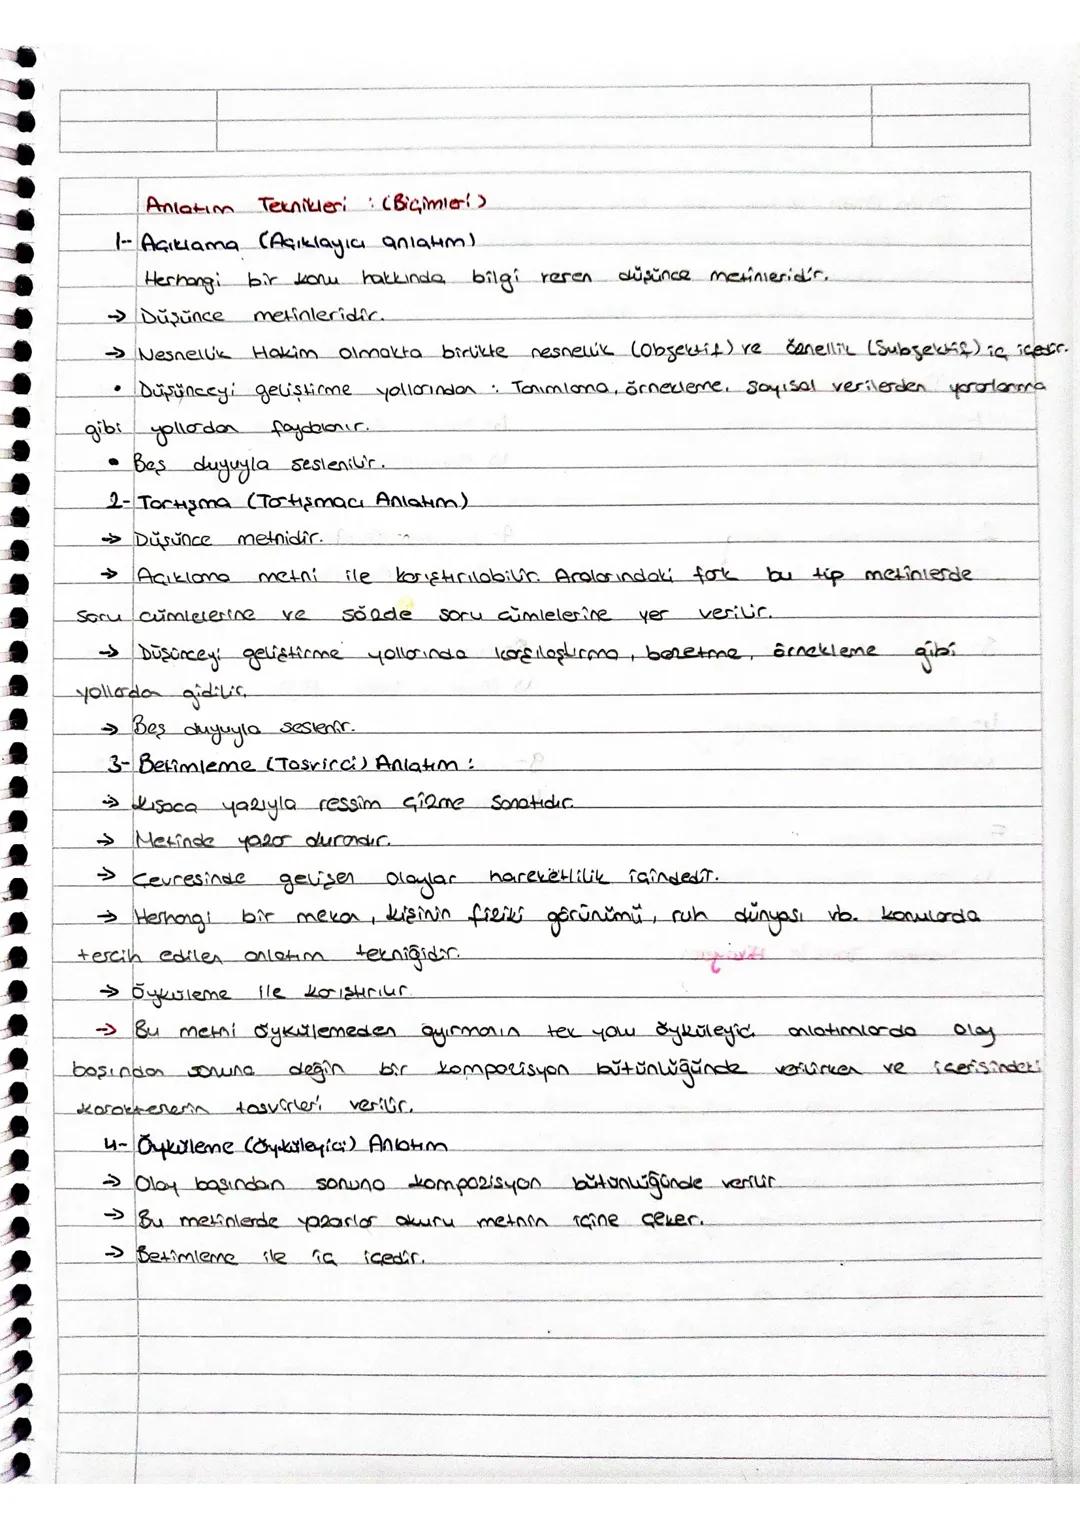 Anlatım Teknikleri : (Biçimleri)
1- Açıklama (Açıklayıcı anlatım)
Herhangi bir konu hakkında bilgi veren düşünce metinleridir.
→ Düşünce metinleridir.
→ Nesnellik Hakim olmakta birlikte nesnellik (Objektif) ve öznellik (Subjektif) iç içedir.
• Düşünceyi geliştirme yollarından : Tanımlama, örnekleme, sayısal verilerden yararlanma
gibi yollardan faydalanır.
• Beş duyuyla seslenilir.
2- Tartışma (Tartışmacı Anlatım)
→ Düşünce metnidir.
→ Açıklama metni ile karıştırılabilir. Aralarındaki fark bu tip metinlerde
soru cümlelerine ve sözde soru cümlelerine yer verilir.
→ Düşünceyi geliştirme yollarında karşılaştırma, benzetme, örnekleme gibi
yollardan gidilir.
→ Beş duyuyla seslenir.
3- Betimleme (Tasvirci) Anlatım :
→ Kısaca yazıyla ressim çizme sanatıdır.
→ Metinde yazar durandır.
→ Çevresinde gelişen olaylar hareketlilik içindedir.
→ Herhangi bir mekan, kişinin fiziki görünümü, ruh dünyası vb. konularda
tercih edilen anlatım tekniğidir.
→ Öyküleme ile karıştırılır.
→ Bu metni öykülemeden ayırmanın tek yolu öyküleyici anlatımlarda olay
başından sonuna değin bir kompozisyon bütünlüğünde verilirken ve içerisindeki
karakterlerin tasvirleri verilir.
4- Öyküleme (Öyküleyici) Anlatım
→ Olay başından sonuna kompozisyon bütünlüğünde verilir.
→ Bu metinlerde yazarlar okuru metnin içine çeker.
→ Betimleme ile iç içedir.